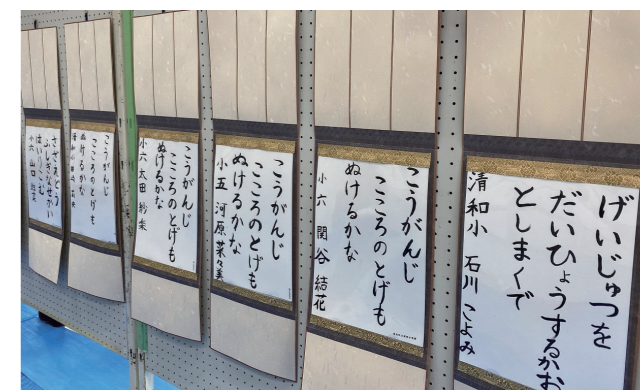 げいじゅつを
だいひょうするかお
としまくで
清和小 石川 こよみ
こうがんじ
こころのとげも
ぬけるかな
小六 関谷 結花
こうがんじ
こころのとげも
ぬけるかな
小五 河原 菜々美
こうがんじ
こころのとげも
ぬけるかな
小六 太田 紗菜
こうがんじ
こころのとげも
ぬけるかな
さざえどう
ふしぎなせかい
はいりこむ
小六 山口